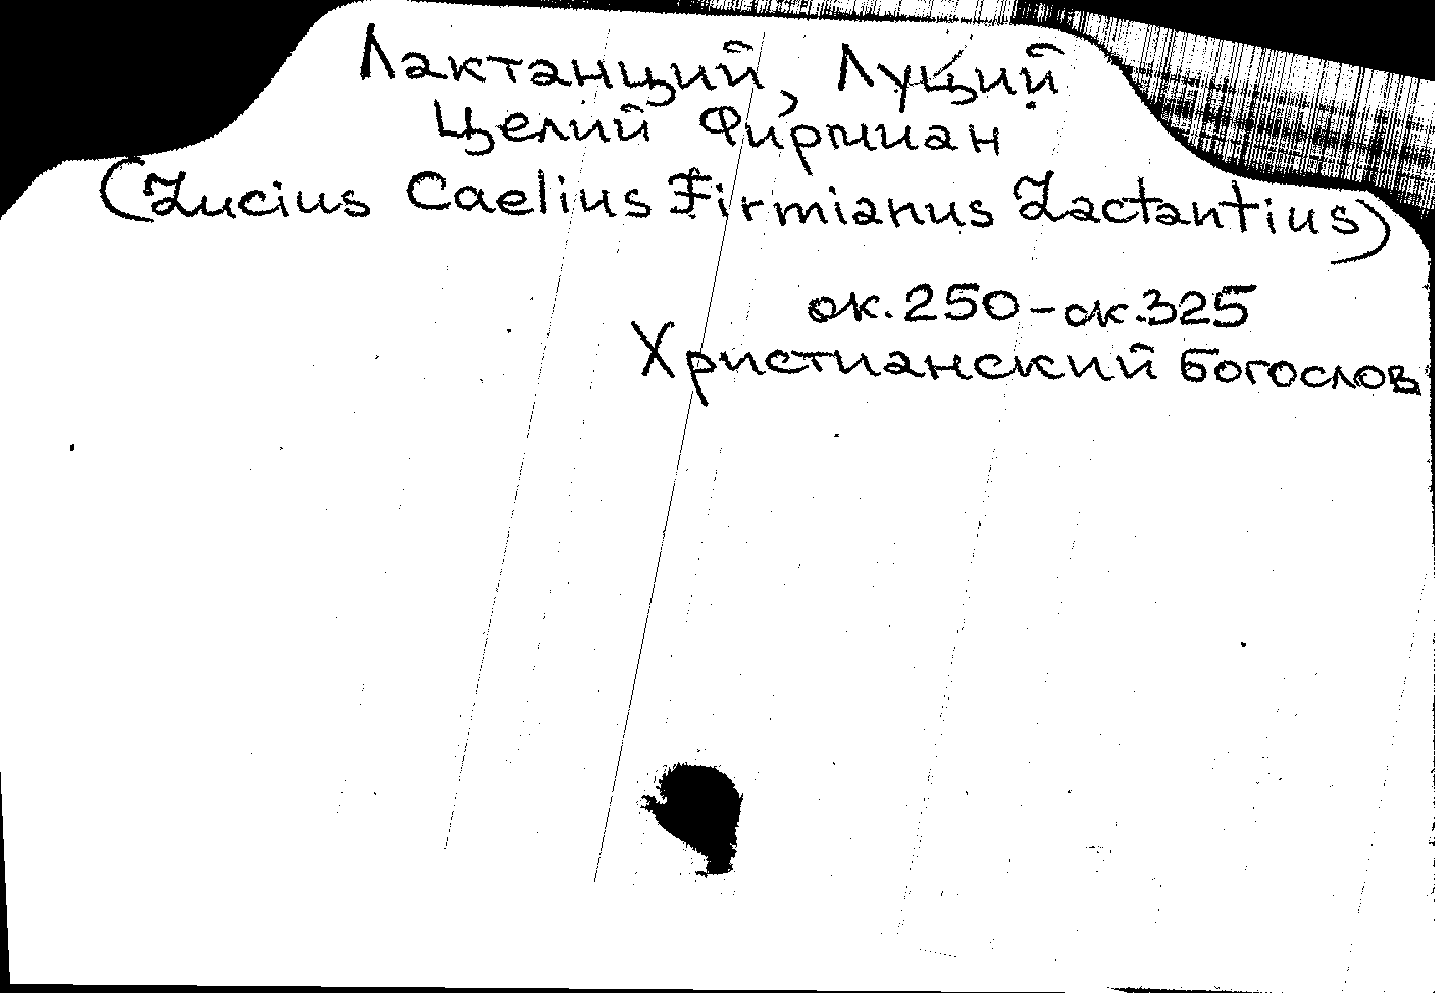 Лактанций, Луций
Целий Фирмиан
(Lucius Caelius Firmianus Lactantius)
ок. 250 - ок. 325
Христианский богослов